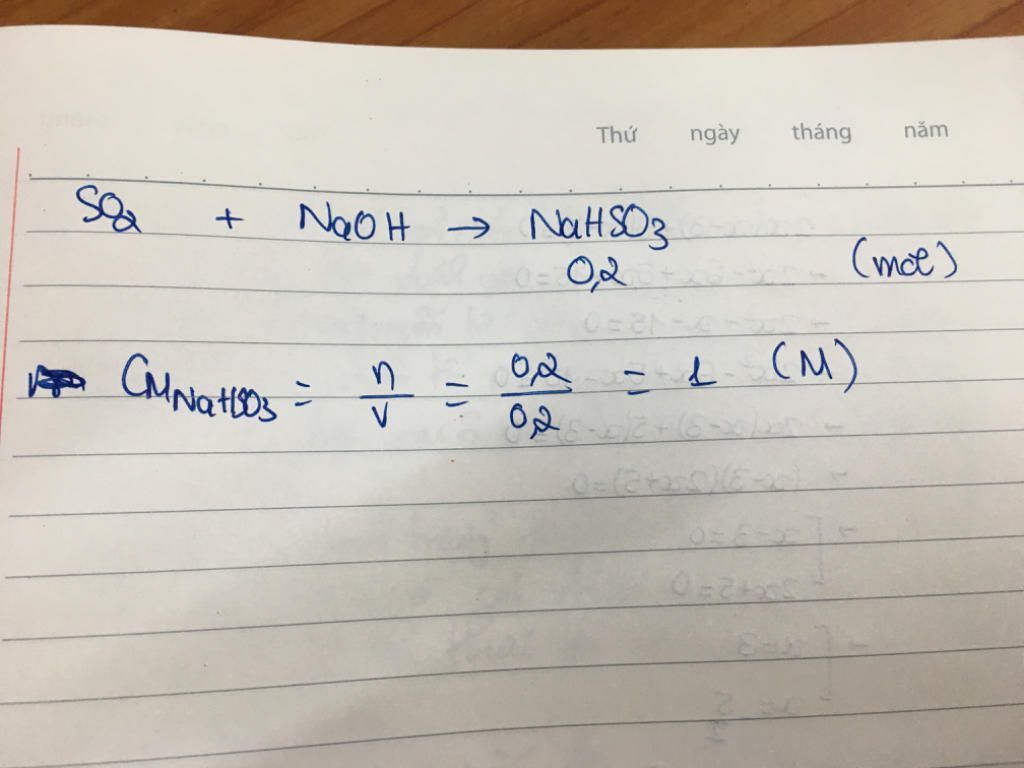 Thứ ngày tháng năm
SO2 + NaOH → NaHSO3
0,2 (mol)
CM NaHSO3 = n/V = 0,2/0,2 = 1 (M)